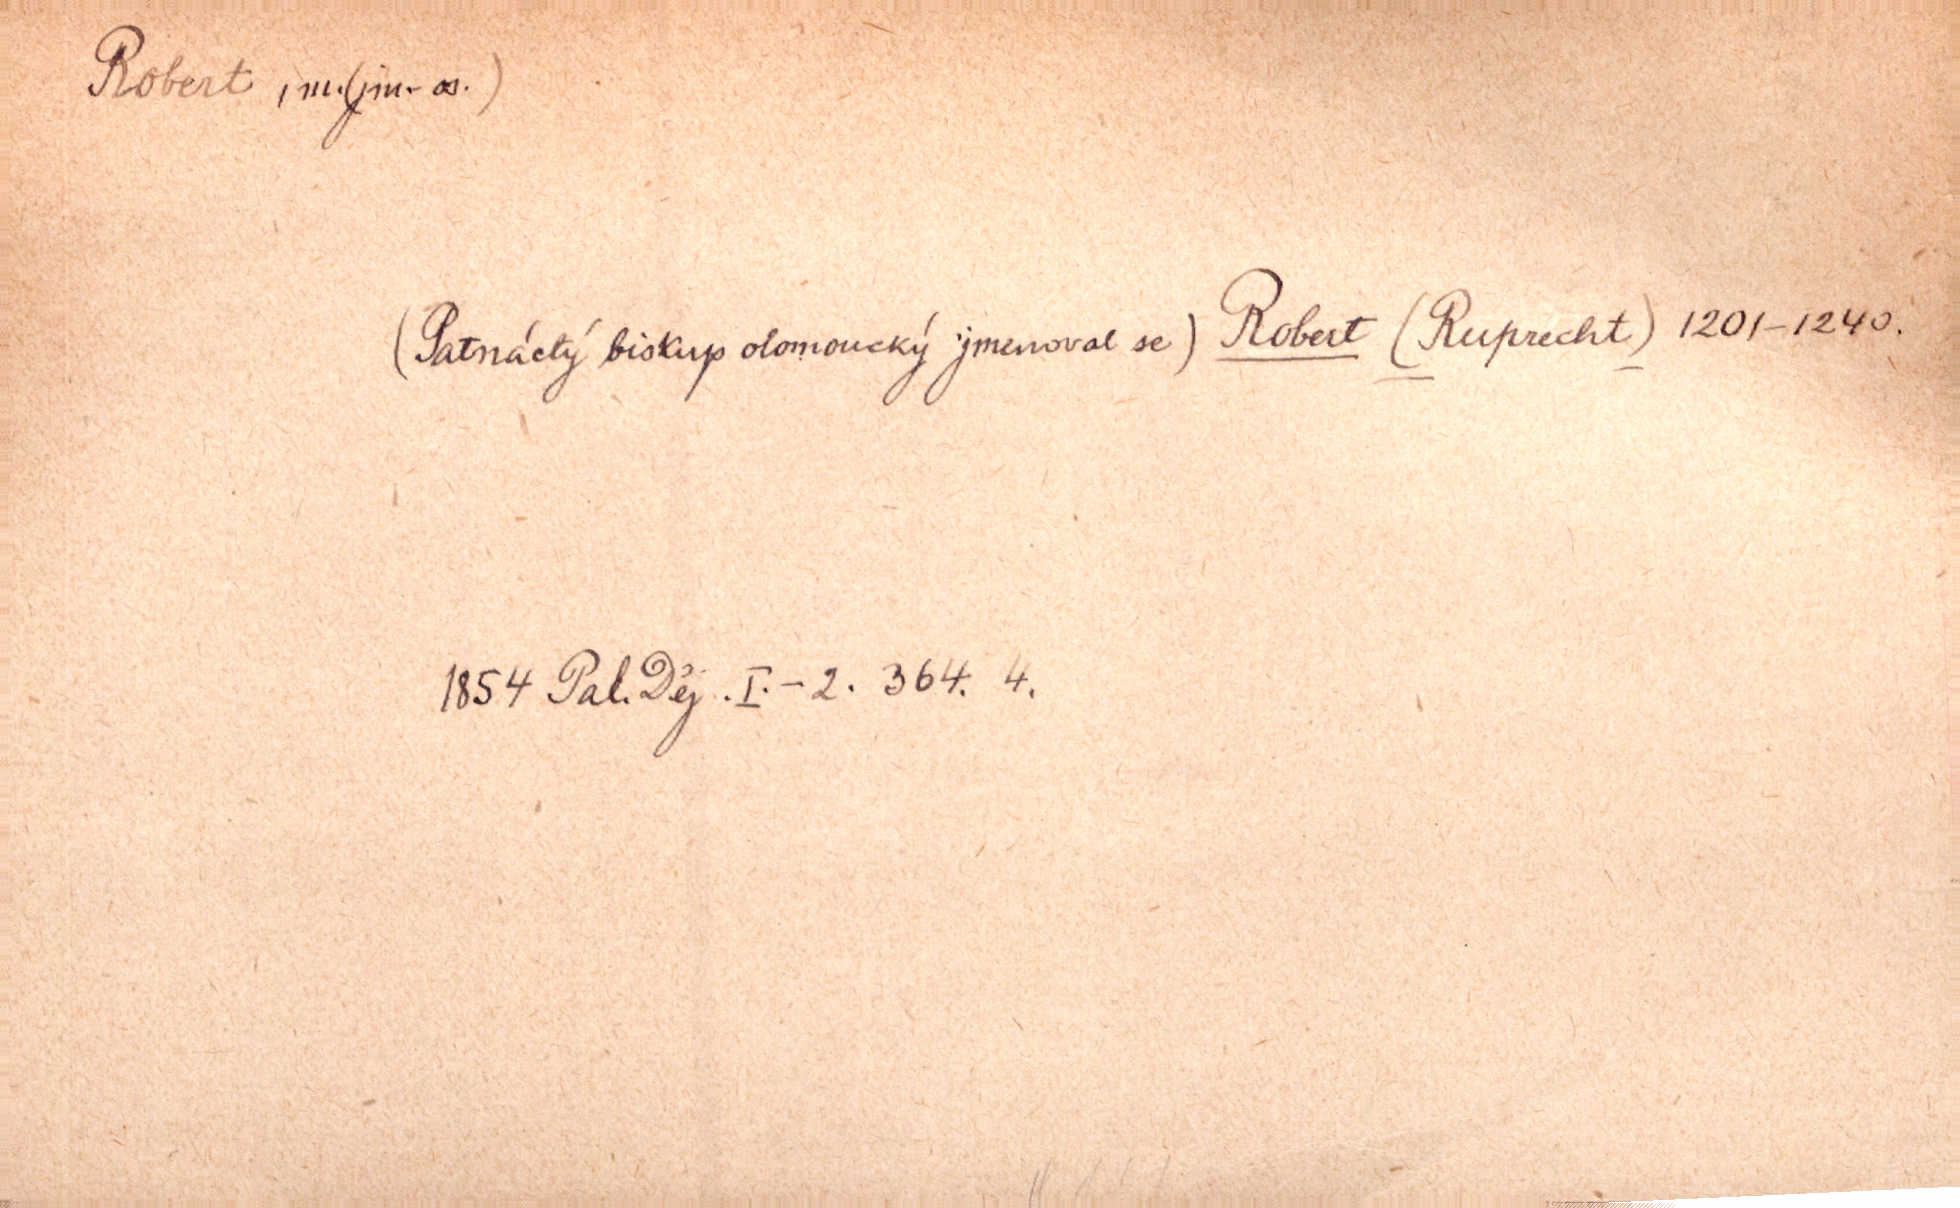 Robert, m. (jm. os.)
(Patnáctý biskup olomoucký jmenoval se) Robert (Ruprecht) 1201-1240.
1854 Pal. Děj. I.-2. 364. 4.